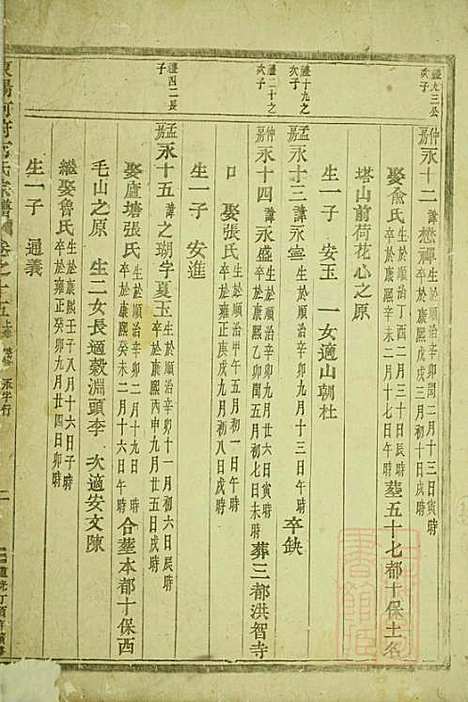 禮九三公
次子
仲房
永十二 諱懋禪 生於順治辛卯閏二月十三日寅時 卒於康熙戊戌三月初二日午時
娶俞氏 生於順治丁酉二月三十日辰時 卒於康熙辛未二月十七日午時 塟五十七都十保土名
塔山前荷花心之原
生一子 安玉 一女適山朝杜
禮十九之
次子
孟房
永十三 諱永寧 生於順治辛卯 卒缺
禮二十之
次子
仲房
永十四 諱永盛 生於順治辛卯九月廿六日寅時 卒於康熙乙卯閏四月初七日未時 葬三都洪智寺
口 娶張氏 生於順治甲午五月初一日 卒於雍正庚戌初八日戌時
生一子 安進
禮四二長
子
孟房
永十五 諱之瑚字夏玉 生於順治辛卯十一月初六日辰時 卒於康熙丙申九月廿五日戌時
娶廬塘張氏 生於順治辛卯二月十九日 時 卒於康熙癸未二月十六日時 合塟本都十保西
毛山之原 生二女長適榖淵頭李 次適安文陳
繼娶魯氏 生於康熙壬子八月十六日子時 卒於雍正癸卯九月廿四日卯時
生一子 通義
氏宗譜 卷之十五 永字行
道光丁酉